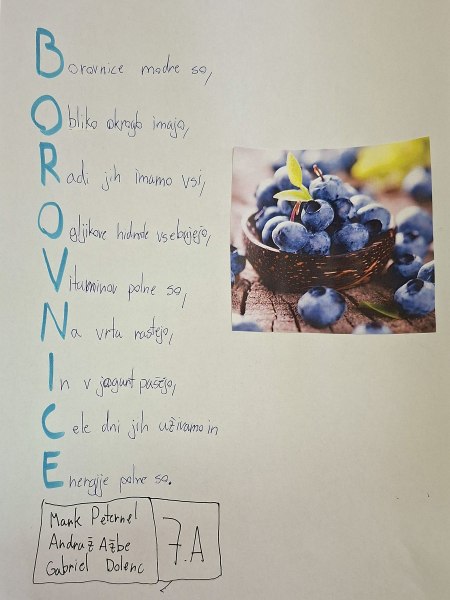 Borovnice modre so,
Obliko okroglo imajo,
Radi jih imamo vsi,
Ogljikove hidrate vsebujejo,
Vitaminov polne so,
Na vrtu rastejo,
In v jogurt pašejo,
Cele dni jih uživamo in
Energije polne so.
Mark Peternel
Andraž Ažbe
Gabriel Dolenc
7.A